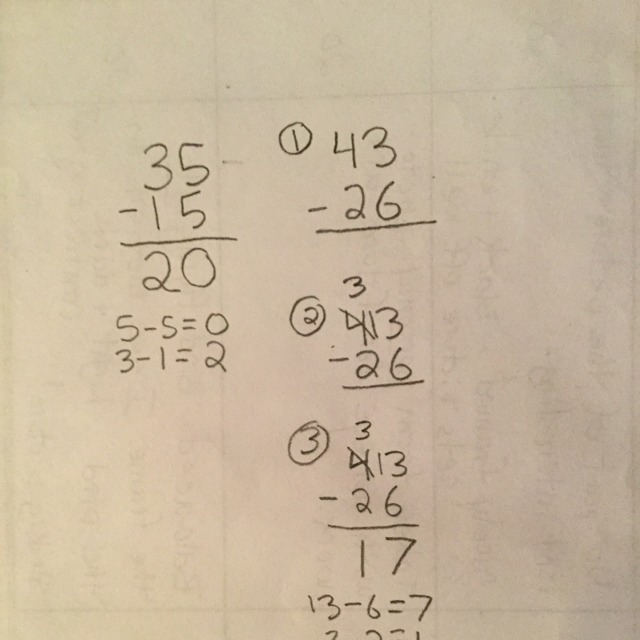 35
-15
20
5-5=0
3-1=2
① 43
-26
3
② 413
-26
3
③ 413
-26
17
13-6=7